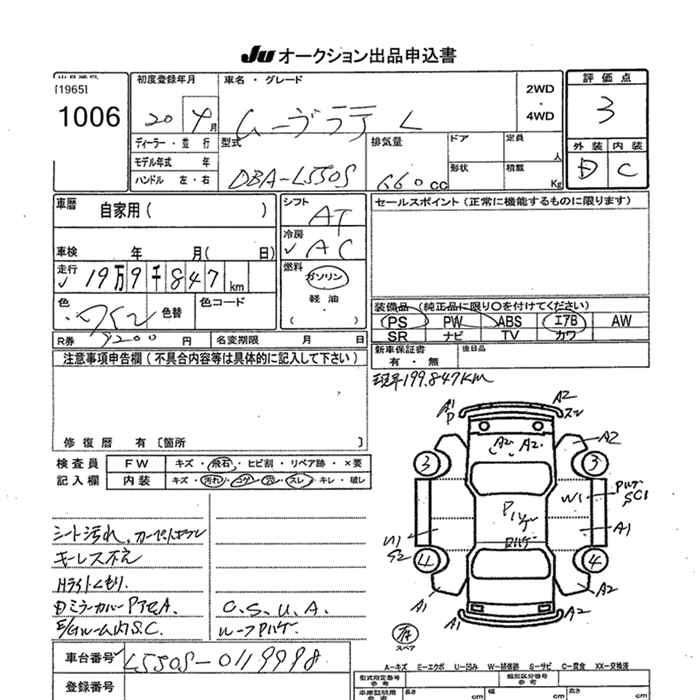 JU オークション出品申込書
[1965]
1006
初度登録年月
20 年 月
車名・グレード
ムーヴラテ L
2WD
・
4WD
評価点
3
外装 内装
D C
ディーラー・並行
モデル年式 年
ハンドル 左・右
型式
DBA-L550S
排気量
660 cc
ドア
形状
定員 人
積載 Kg
車歴 自家用( )
シフト
AT
セールスポイント(正常に機能するものに限ります)
車検 年 月( 日)
冷房
AC
走行
19万9千847 km
燃料
ガソリン
軽油
・
( )
色
ワイン
色替
色コード
装備品(純正品に限り〇を付けてください)
PS PW ABS エアB AW
SR ナビ TV カワ
R券 円
名変期限 月 日
新車保証書
有・無
後日品
注意事項申告欄(不具合内容等は具体的に記入して下さい)
現車199.847KM
修復歴 有[箇所 ]
検査員
記入欄
FW キズ・飛石・ヒビ割・リペア跡・×要
内装 キズ・汚れ・コゲ・穴・スレ・キレ・破レ
A1
P
A2
A2 A2
A2
3 3
W1
SC1
A1
U1
S2
4 4
A1
A2
A1
A2
シート汚れ、
キーレス不え
Hライトくもり.
E/Gルーム内S.C.
C.S.U.A.
スペア
車台番号
L550S-0119998
登録番号
A-キズ E-エクボ U-凹み W-補修跡 S-サビ C-腐食 XX-交換済
型式指定番号
参考
類別区分番号
参考
長さ cm
幅 cm
高さ cm